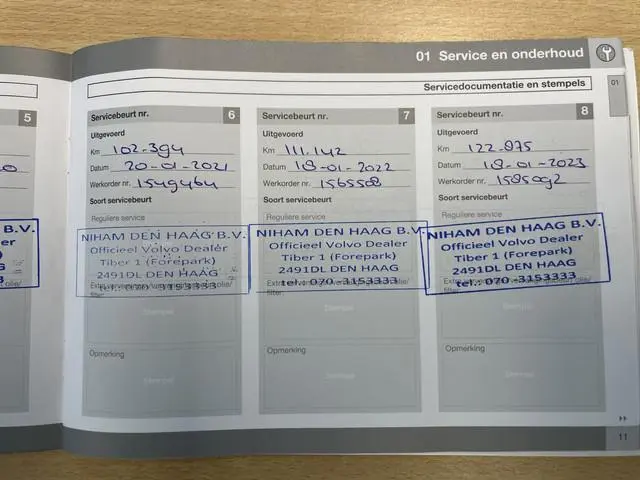 01 Service en onderhoud
Servicedocumentatie en stempels
01
5
Servicebeurt nr. 6
Uitgevoerd
Km 102.394
Datum 20-01-2021
Werkorder nr. 1549464
Soort servicebeurt
Reguliere service
NIHAM DEN HAAG B.V.
Officieel Volvo Dealer
Tiber 1 (Forepark)
2491DL DEN HAAG
tel.: 070-3153333
filter:
Stempel
Opmerking
Stempel
Servicebeurt nr. 7
Uitgevoerd
Km 111.142
Datum 18-01-2022
Werkorder nr. 1565508
Soort servicebeurt
Reguliere service
NIHAM DEN HAAG B.V.
Officieel Volvo Dealer
Tiber 1 (Forepark)
2491DL DEN HAAG
tel.: 070-3153333
filter:
Stempel
Opmerking
Stempel
Servicebeurt nr. 8
Uitgevoerd
Km 122.875
Datum 18-01-2023
Werkorder nr. 1585092
Soort servicebeurt
Reguliere service
NIHAM DEN HAAG B.V.
Officieel Volvo Dealer
Tiber 1 (Forepark)
2491DL DEN HAAG
tel.: 070-3153333
filter:
Stempel
Opmerking
Stempel
11